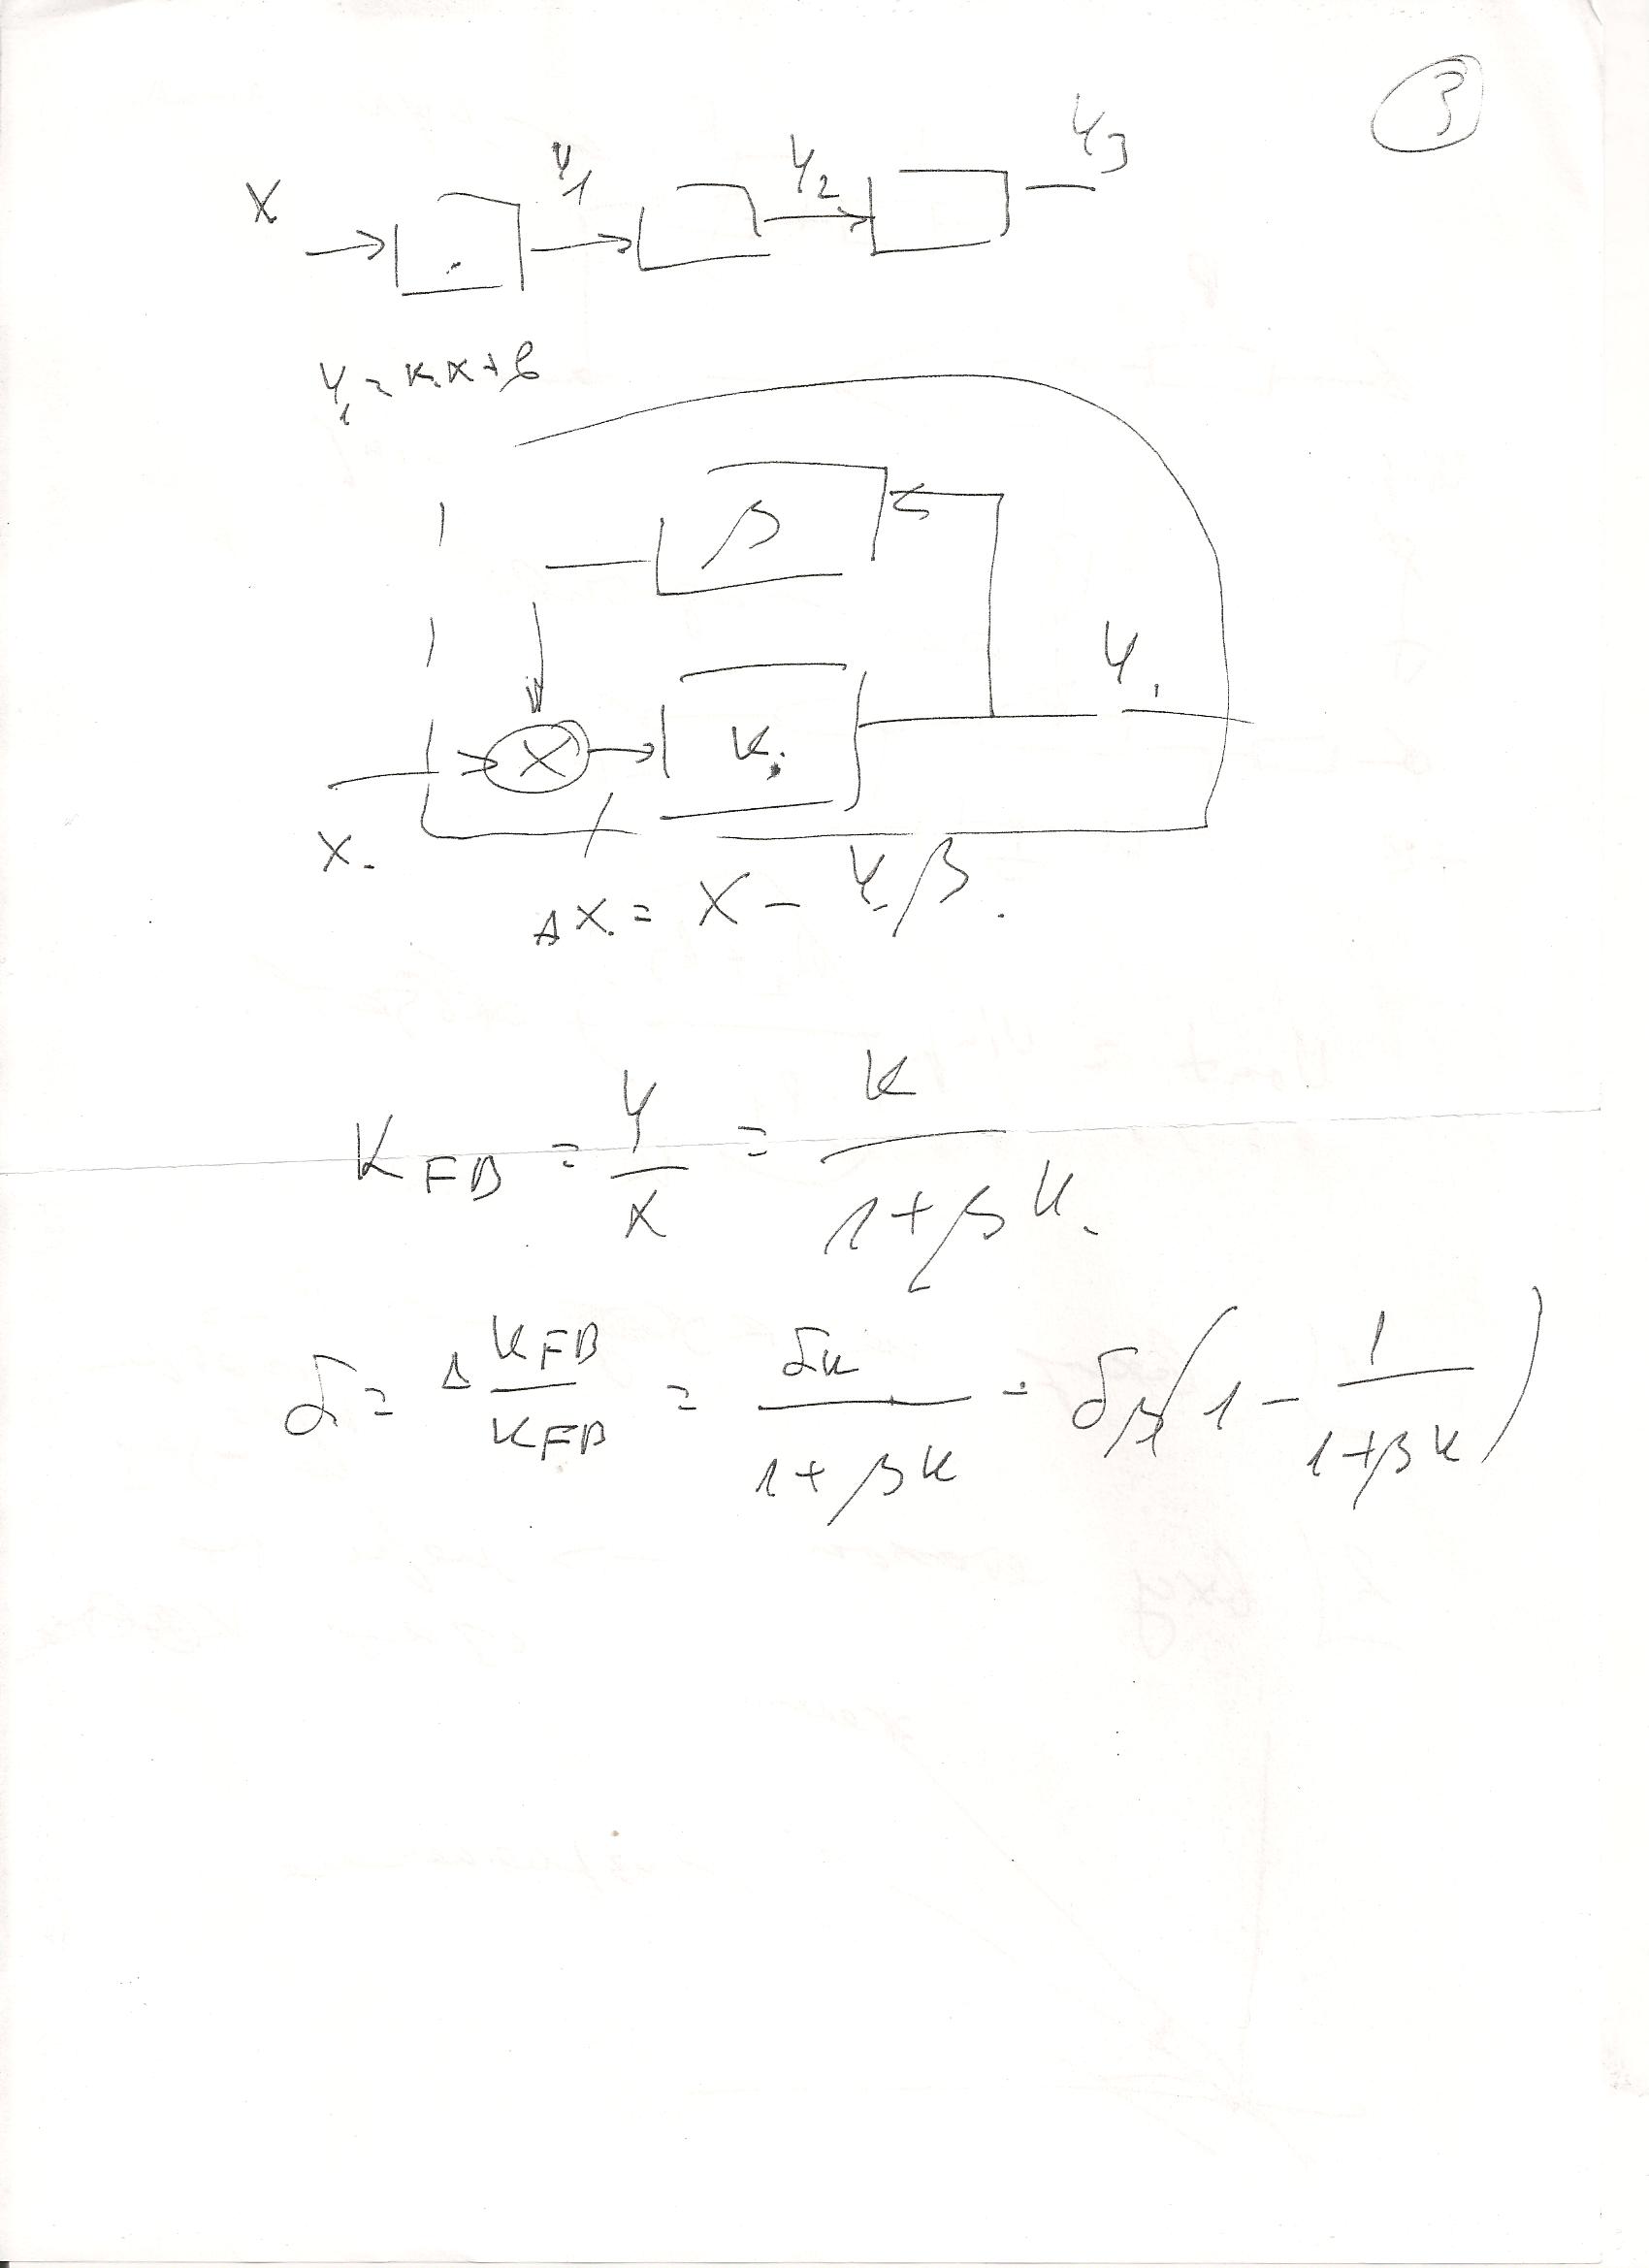 3
X Y1 Y2 Y3
Y1 = K.X + b
β
Y.
X K.
X.
ΔX. = X - Y.β.
K FB = Y/X = K/(1+βK.
δ = Δ KFB/KFB = δK/(1+βK) - δβ(1 - 1/(1+βK))